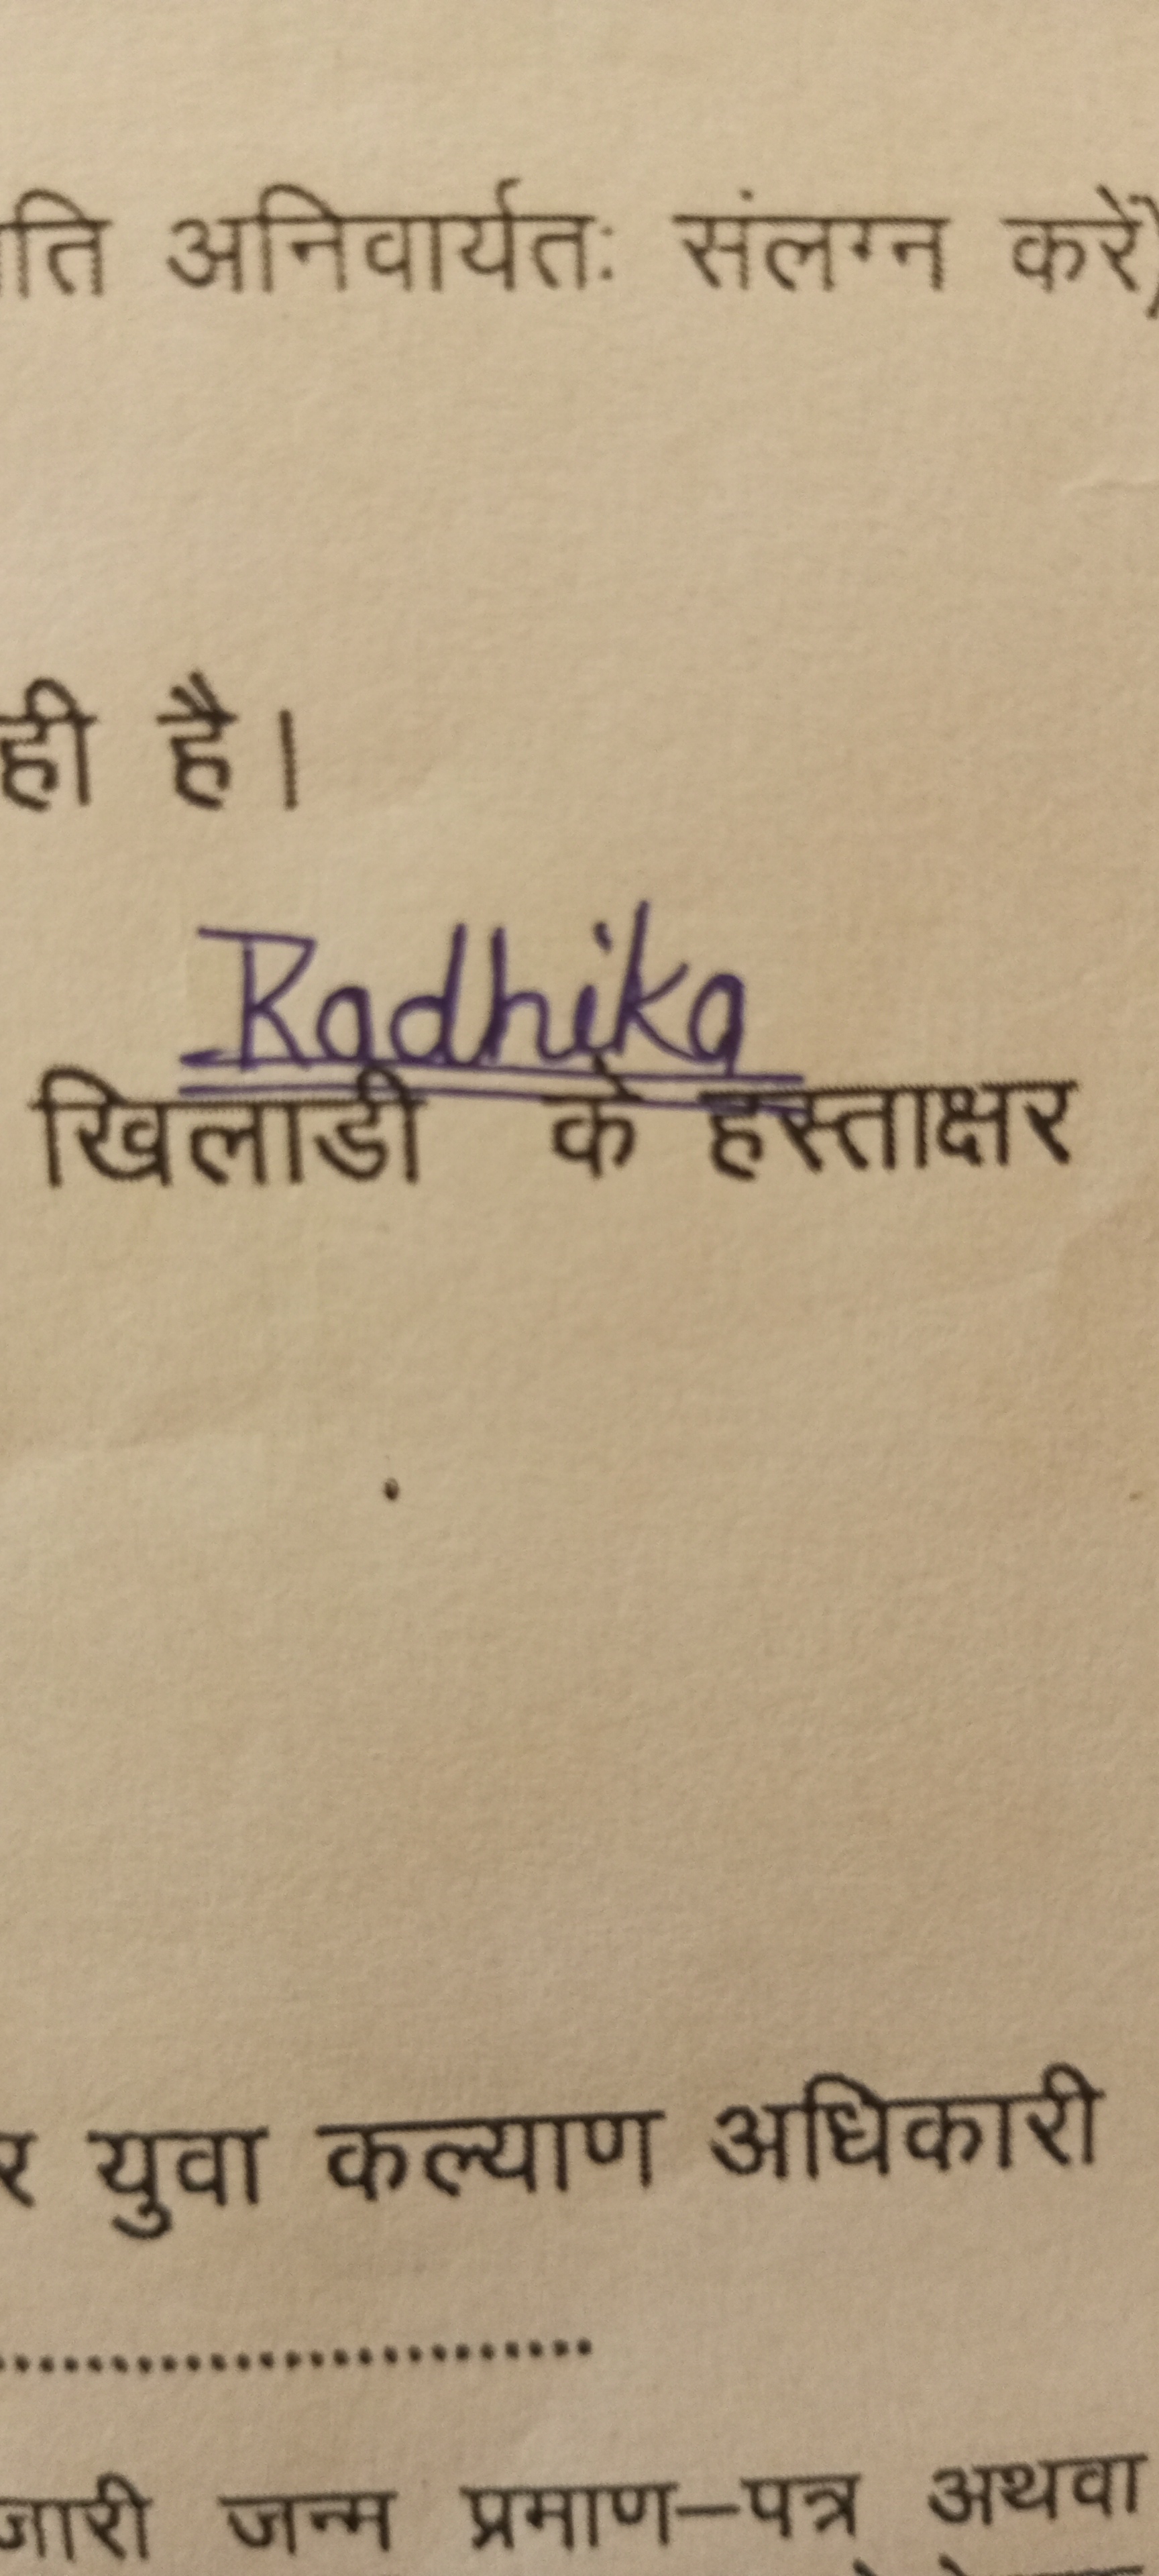 ति अनिवार्यतः संलग्न करें)
ही है।
Radhika
खिलाडी के हस्ताक्षर
युवा कल्याण अधिकारी
..............................
जारी जन्म प्रमाण–पत्र अथवा